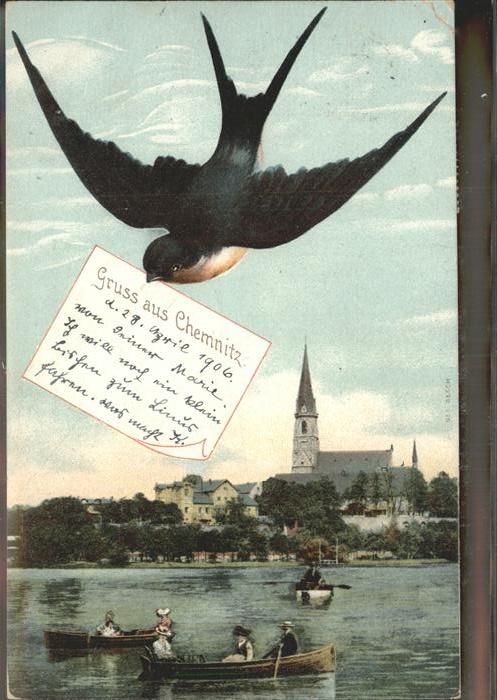 Gruss aus Chemnitz
d. 28. April 1906.
von Deiner Marie.
Ich will noch ein klein
bischen zum Linus
fahren. was macht K.